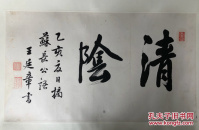 清陰
乙亥夏日摘
蘇長公語
王廷章書